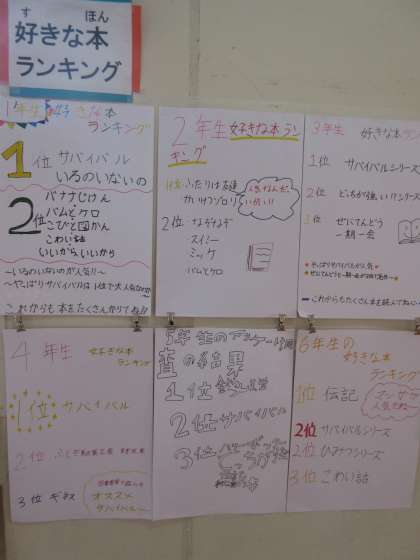 すほん
好きな本
ランキング
1年生 好きな本
ランキング
1位 サバイバル
いろのいないの
2位 バナナじけん
バムとケロ
こびと図かん
こわい話
いいからいいから
～いろのいないのが人気!!～
～やっぱりサバイバルは1位で大人気
これからも本をたくさんかりてね!!
2年生好きな本ラン
キング
1位 ふたりは友達
かいけつゾロリ
2位 なぞなぞ
スイミー
ミッケ
バムとケロ
3年生 好きな本
1位 サバイバルシリーズ
2位 どっちが強い!?シリーズ
3位 ぜにてんどう
一期一会
やっぱりサバイバルが人気
これからもたくさん本を読んでね
4年生 好きな本
ランキング
1位 サバイバル
2位
3位 ギネス
オススメ
サバイバル
5年生のアンケート調
査の結果
1位
2位 サバイバル
3位
6年生の
好きな本
ランキング
1位 伝記
2位 サバイバルシリーズ
2位 ひみつシリーズ
3位 こわい話